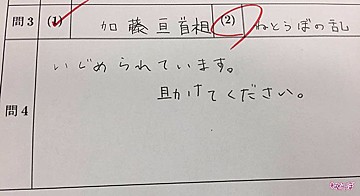 問3 (1) 加藤亘首相 (2) ねとうぼの乱
いじめられています。
助けてください。
問4
ねとぼ